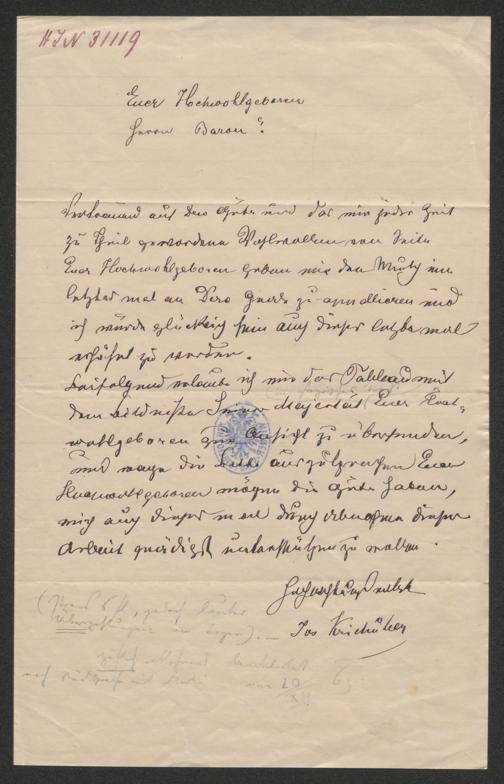 HIN 31119
Euer Hochwohlgeboren
Herrn Baron!
Vertrauend auf Dero Güte und das mir jeder Zeit
zu Theil gewordene Wohlwollen von Seite
Euer Hochwohlgeboren geben mir den Muth ein
letztes mal an Dero Gnade zu apellieren und
ich würde glücklich sein auch dieses letzte mal
erhöhrt zu werden.
Beifolgend erlaube ich mir das Tableau mit
dem Bildnisse Seiner Majestät Euer Hoch-
wohlgeboren zur Ansicht zu übersenden,
und wage die Bitte auszusprechen Euer
Hochwohlgeboren mögen die Güte haben,
mich auch dieses mal durch Abnahme dieser
Arbeit gnädigst unterstützen zu wollen.
Hochachtungsvollst
Jos Kriehuber